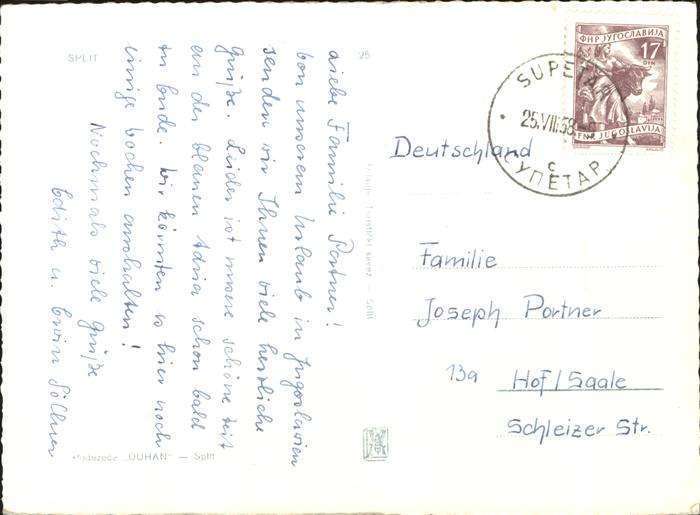 SPLIT
96
Liebe Familie Portner!
Von unserem Urlaub in Jugoslavien
senden wir Ihnen viele herzliche
Grüße. Leider ist unsere schöne Zeit
an der blauen Adria schon bald
zu Ende. Wir könnten es hier noch
einige Wochen aushalten!
Nochmals viele Grüße
Edith u. Erwin
"DUHAN" — Split
Turistički savez — Split
ФНР ЈУГОСЛАВИЈА
17
DIN
FNR JUGOSLAVIJA
SUPETAR
25.VIII.58
c
СУПЕТАР
Deutschland
Familie
Joseph Portner
13a Hof/Saale
Schleizer Str.